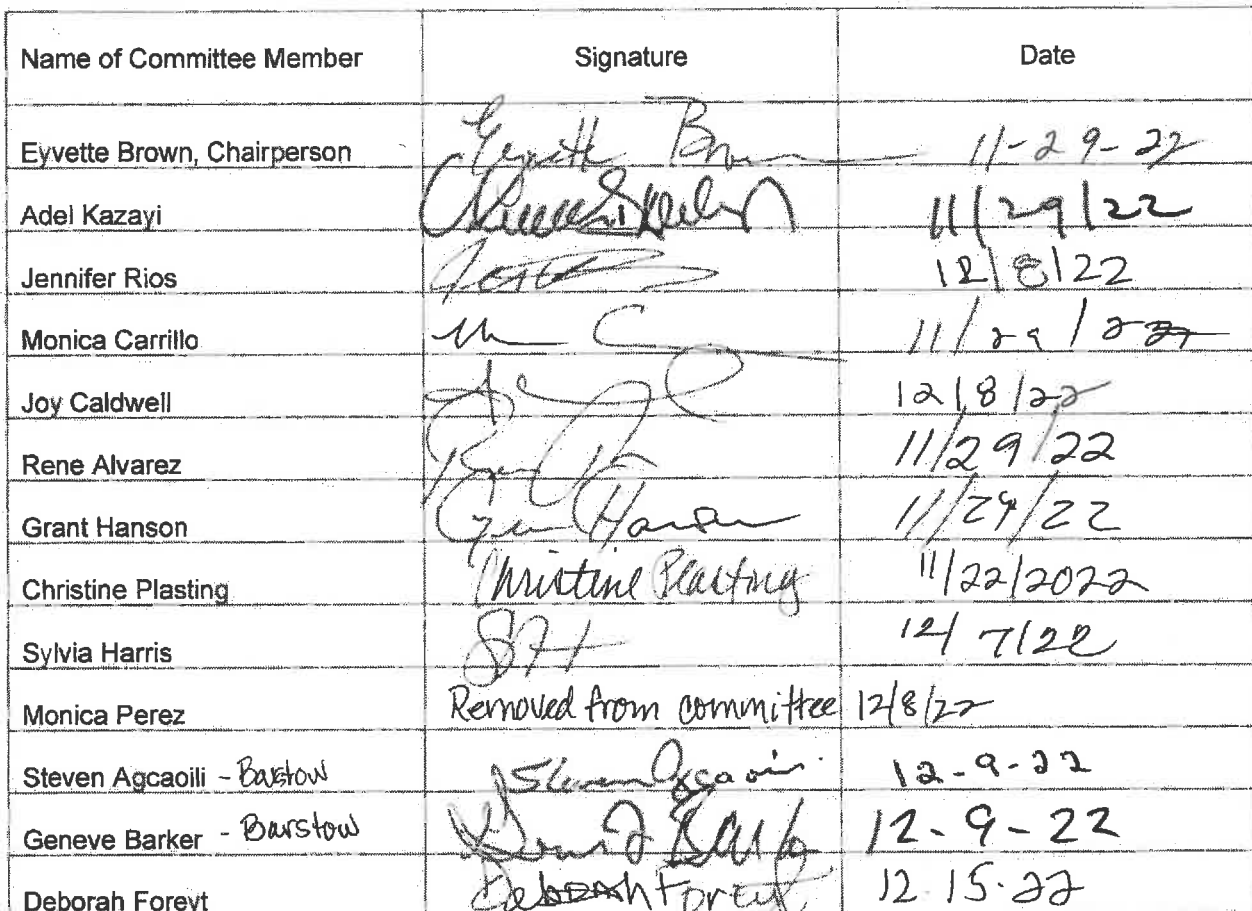 Name of Committee Member Signature Date
Eyvette Brown, Chairperson Eyvette Brown 11-29-22
Adel Kazayi 11/29/22
Jennifer Rios 12/8/22
Monica Carrillo 11/29/22
Joy Caldwell 12/8/22
Rene Alvarez 11/29/22
Grant Hanson Hanson 11/29/22
Christine Plasting Christine Plasting 11/22/2022
Sylvia Harris SH 12/7/22
Monica Perez Removed from committee 12/8/22
Steven Agcaoili - Barstow Steven Agcaoili 12-9-22
Geneve Barker - Barstow 12-9-22
Deborah Foreyt Deborah Foreyt 12.15.22